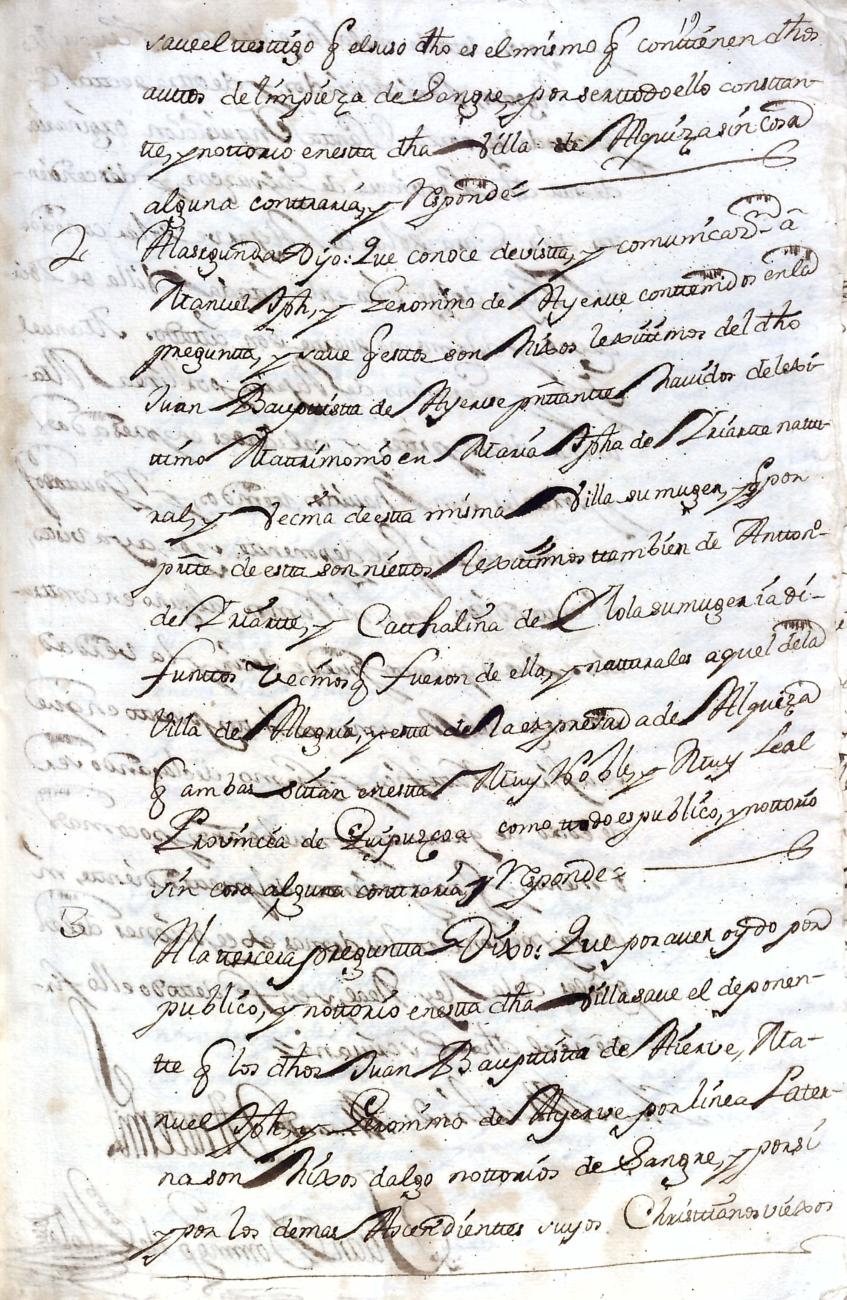 saue el testigo q̃ el suso dho es el mismo q̃ contienen dhos
auttos de limpieza de Sangre, y por ser ttodo ello constan-
tte, y nottorio en estta dha Villa de Alquiza sin cosa
alguna conttraria, y Responde =
2 A la segunda Dijo: Que conoce de vistta, y comunicazon a
Manuel Jph, y Geronimo de Ayerue conttenidos en la
pregunta, y saue q̃ esttos son hixos lexittimos del dho
Juan Bauptista de Ayerue pñtantte hauidos de lexi-
ttimo Mattrimonio en Maria Jpha de Yriartte nattu-
ral, y Vecina de esta misma Villa su muger, y q̃ por
pártte de esta son niettos lexittimos ttambien de Anttonº
de Yriartte, y Catthalina de Olola su muger ia di-
funttos Vecinos q̃ fueron de ella, y natturales aquel de la
Villa de Alegria, y esta de la expresada de Alquiza
q̃ ambas sittan en estta Muy Noble, y Muy Leal
Prouincia de Guipuzcoa como ttodo es publico, y nottorio
sin cosa alguna conttraria, y Responde =
3 A la ttercera pregunta Dixo: Que por auer oydo por
publico, y nottorio en estta dha Villa saue el deponen-
tte q̃ los dhos Juan Bauptista de Aierue, Ma-
nuel Jph, y Geronimo de Ayerue por linea Pater-
na son hixos dalgo nottorios de Sangre, y por si
y por los demas Ascendienttes suyos Christtianos viexos